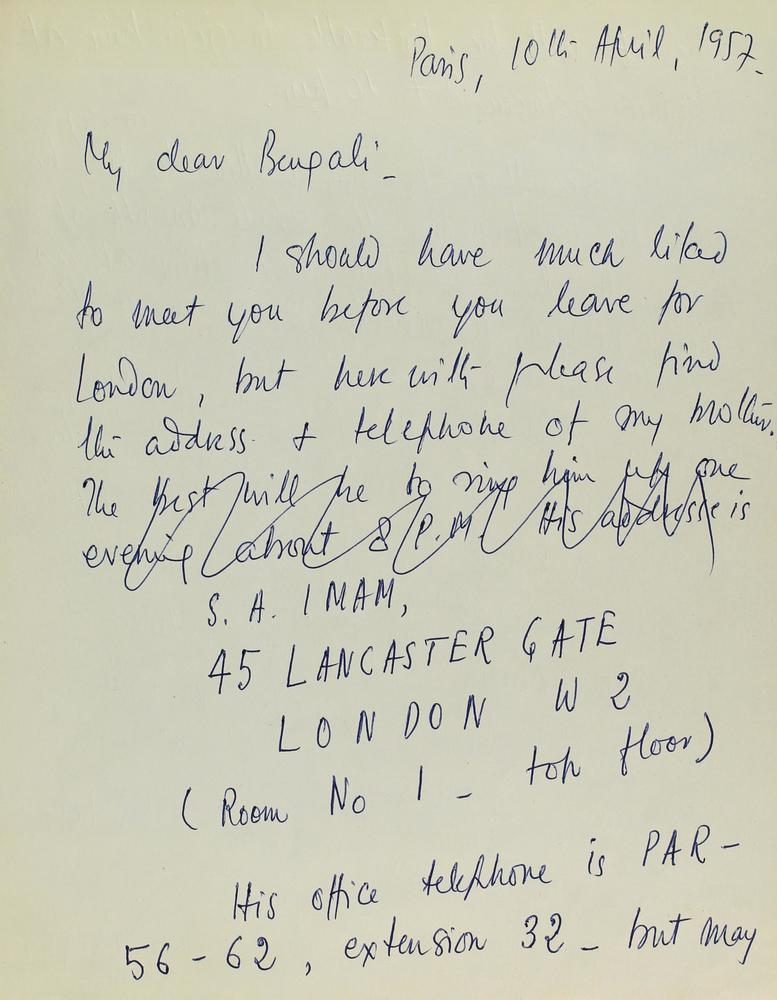 Paris, 10th April, 1957.
My dear Bengali -
I should have much liked
to meet you before you leave for
London, but here with please find
the address & telephone of my brother.
The best will be to ring him up one
evening about 8 P.M. His address is
S. A. IMAM,
45 LANCASTER GATE
LONDON W 2
(Room No 1 - top floor)
His office telephone is PAR -
56 - 62, extension 32 - but may